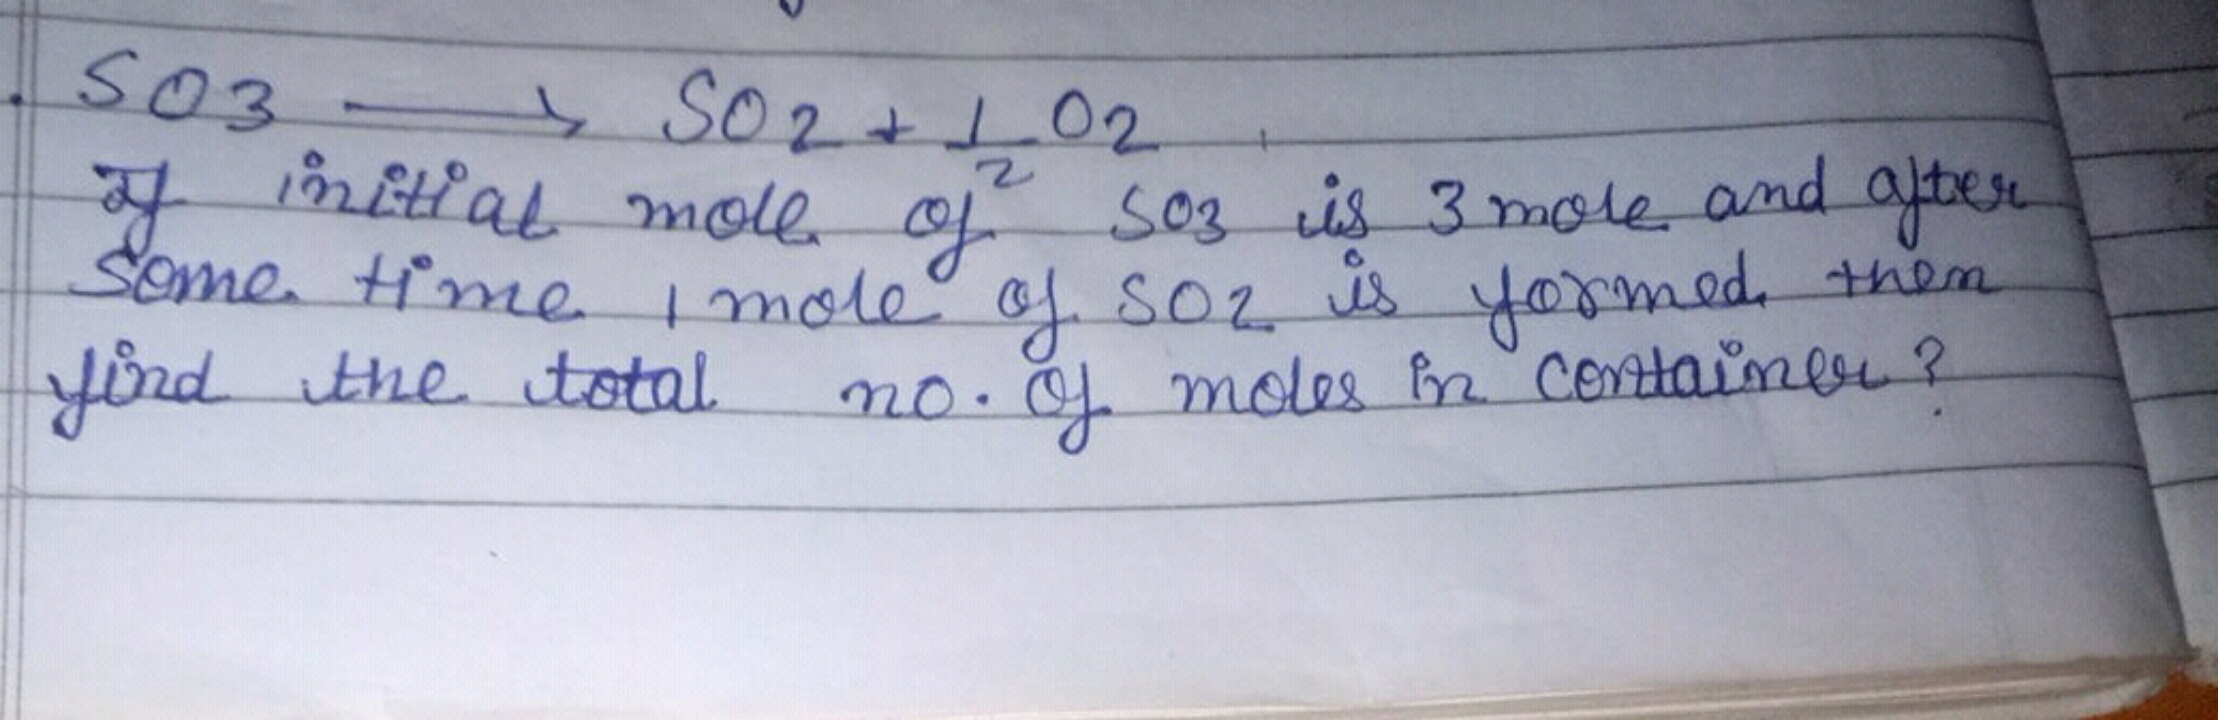 . SO3 → SO2 + 1/2 O2
If initial mole of SO3 is 3 mole and after
some time 1 mole of SO2 is formed then
find the total no. of moles in container?